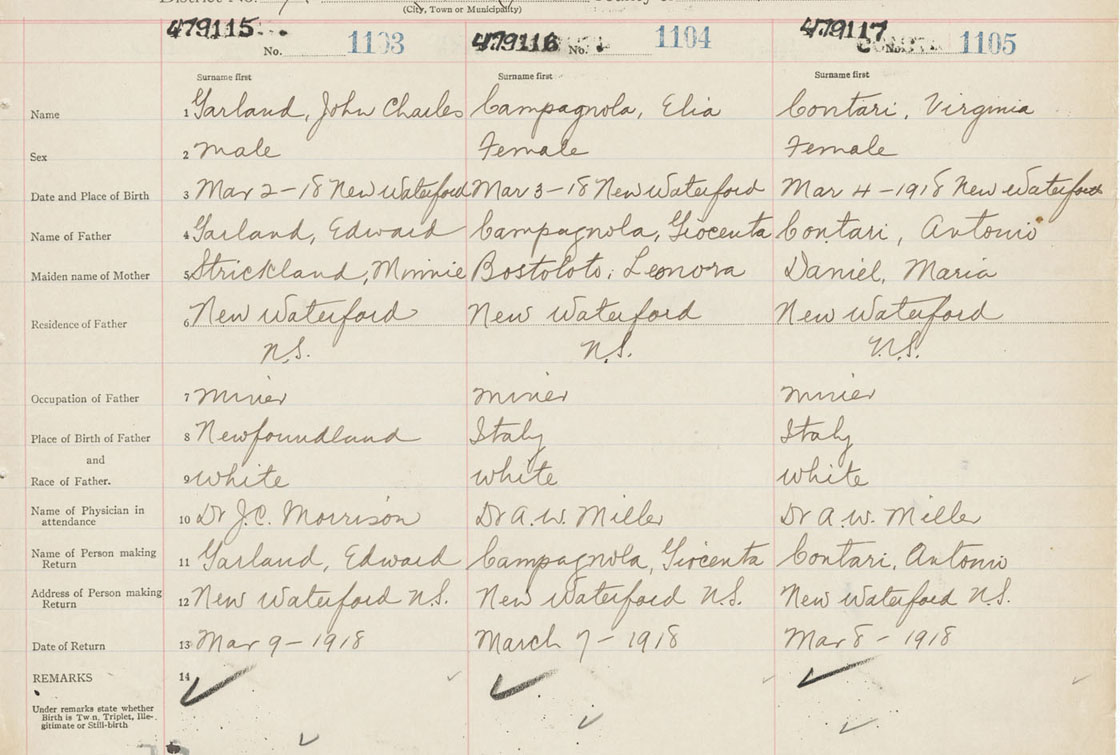 District No.
(City, Town or Municipality)
479115 No. 1103 479116 No. 1104 479117 No. 1105
Surname first Surname first Surname first
Name 1 Garland, John Charles Campagnola, Elia Contari, Virginia
Sex 2 male Female Female
Date and Place of Birth 3 Mar 2-18 New Waterford Mar 3-18 New Waterford Mar 4-1918 New Waterford
Name of Father 4 Garland, Edward Campagnola, Giocenta Contari, Antonio
Maiden name of Mother 5 Strickland, Minnie Bostoloto, Leonora Daniel, Maria
Residence of Father 6 New Waterford New Waterford New Waterford
N.S. N.S. N.S.
Occupation of Father 7 miner miner miner
Place of Birth of Father 8 Newfoundland Italy Italy
and
Race of Father. 9 white white white
Name of Physician in
attendance 10 Dr J.C. Morrison Dr A.W. Miller Dr A.W. Miller
Name of Person making
Return 11 Garland, Edward Campagnola, Giocenta Contari, Antonio
Address of Person making
Return 12 New Waterford N.S. New Waterford N.S. New Waterford N.S.
Date of Return 13 Mar 9-1918 March 7-1918 Mar 8-1918
REMARKS 14
Under remarks state whether
Birth is Twin, Triplet, Ille-
gitimate or Still-birth